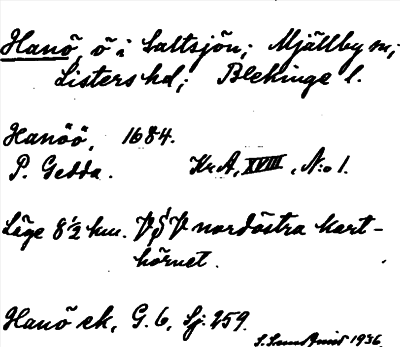 Hanö ö i Saltsjön; Mjällby sn;
Listers hd; Blekinge l.
Hanöö, 1684.
P. Gedda. KrA, XVIII, N:o 1.
Läge 8 1/2 km. nordöstra kart-
hörnet.
Hanö ek. G. 6, Sj: 259.
1936